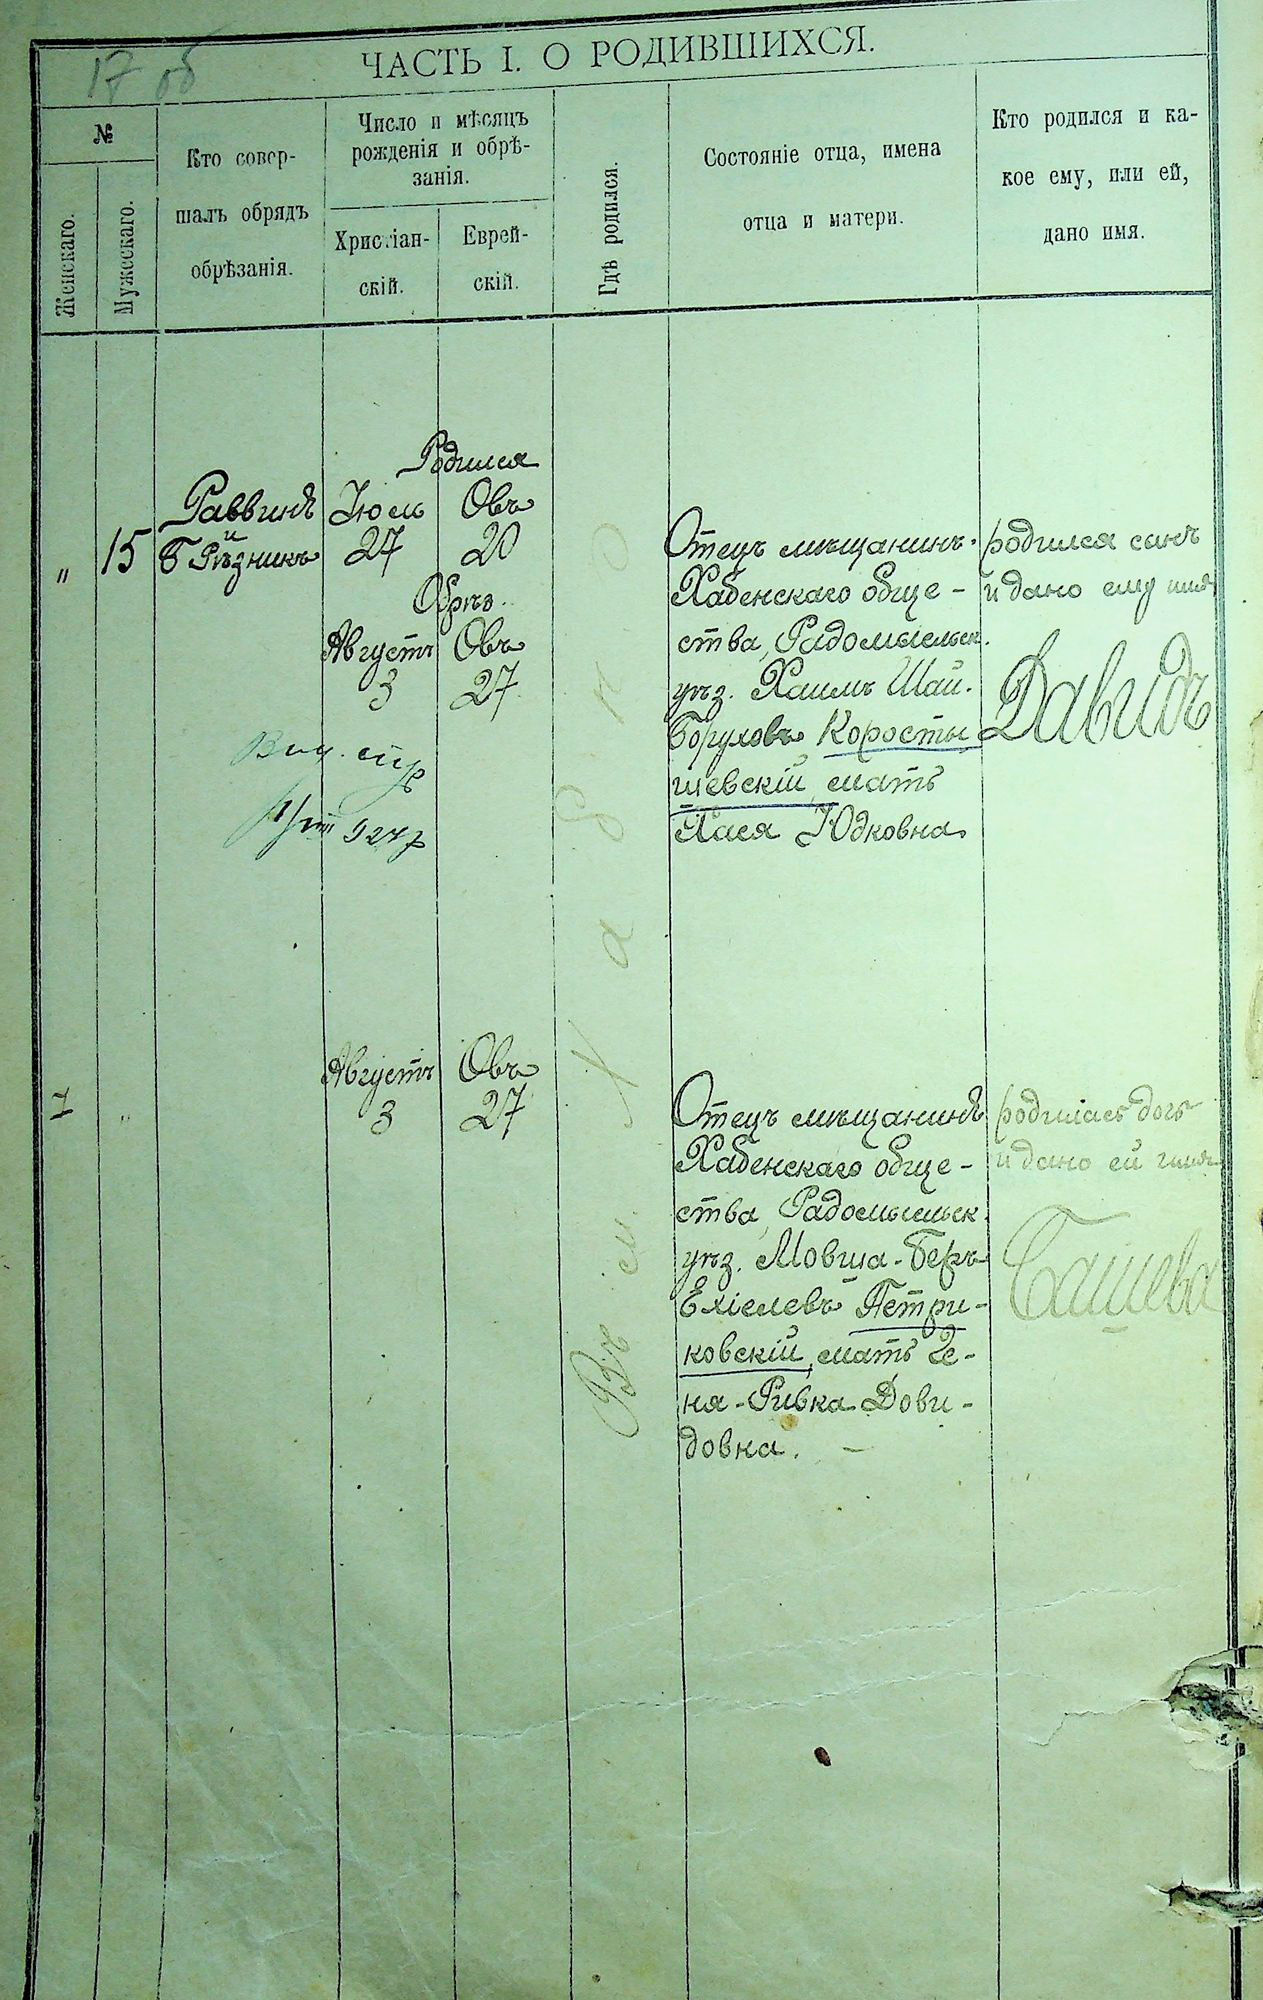 17 об
ЧАСТЬ I. О РОДИВШИХСЯ.
№
Женскаго.
Мужескаго.
Кто совер-
шалъ обрядъ
обрѣзанія.
Число и мѣсяцъ
рожденія и обрѣ-
занія.
Христіан-
скій.
Еврей-
скій.
Гдѣ родился.
Состояніе отца, имена
отца и матери.
Кто родился и ка-
кое ему, или ей,
дано имя.
Родился
Раввинъ
и
Рѣзникъ
"
15
Іюль
27
Овъ
20
Обрѣз.
Августъ
3
Овъ
27
Выд.
924
Отецъ мѣщанинъ
Хабенскаго обще-
ства, Радомысльск.
уѣз. Хаимъ Шай-
Боруховъ Коросты
шевскій, мать
Хася Юдковна
родился сынъ
и дано ему имя
Давидъ
Въ м. Хабно
"
Августъ
3
Овъ
27
Отецъ мѣщанинъ
Хабенскаго обще-
ства, Радомысльск.
уѣз. Мовша-Беръ
Ехіелевъ Петри-
ковскій, мать
ня-Ривка Дови-
довна. -
родилась дочь
и дано ей имя
Башева